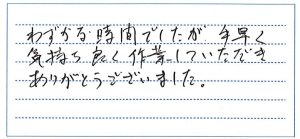 わずかな時間でしたが 手早く
気持ち良く作業していただき
ありがとうございました。